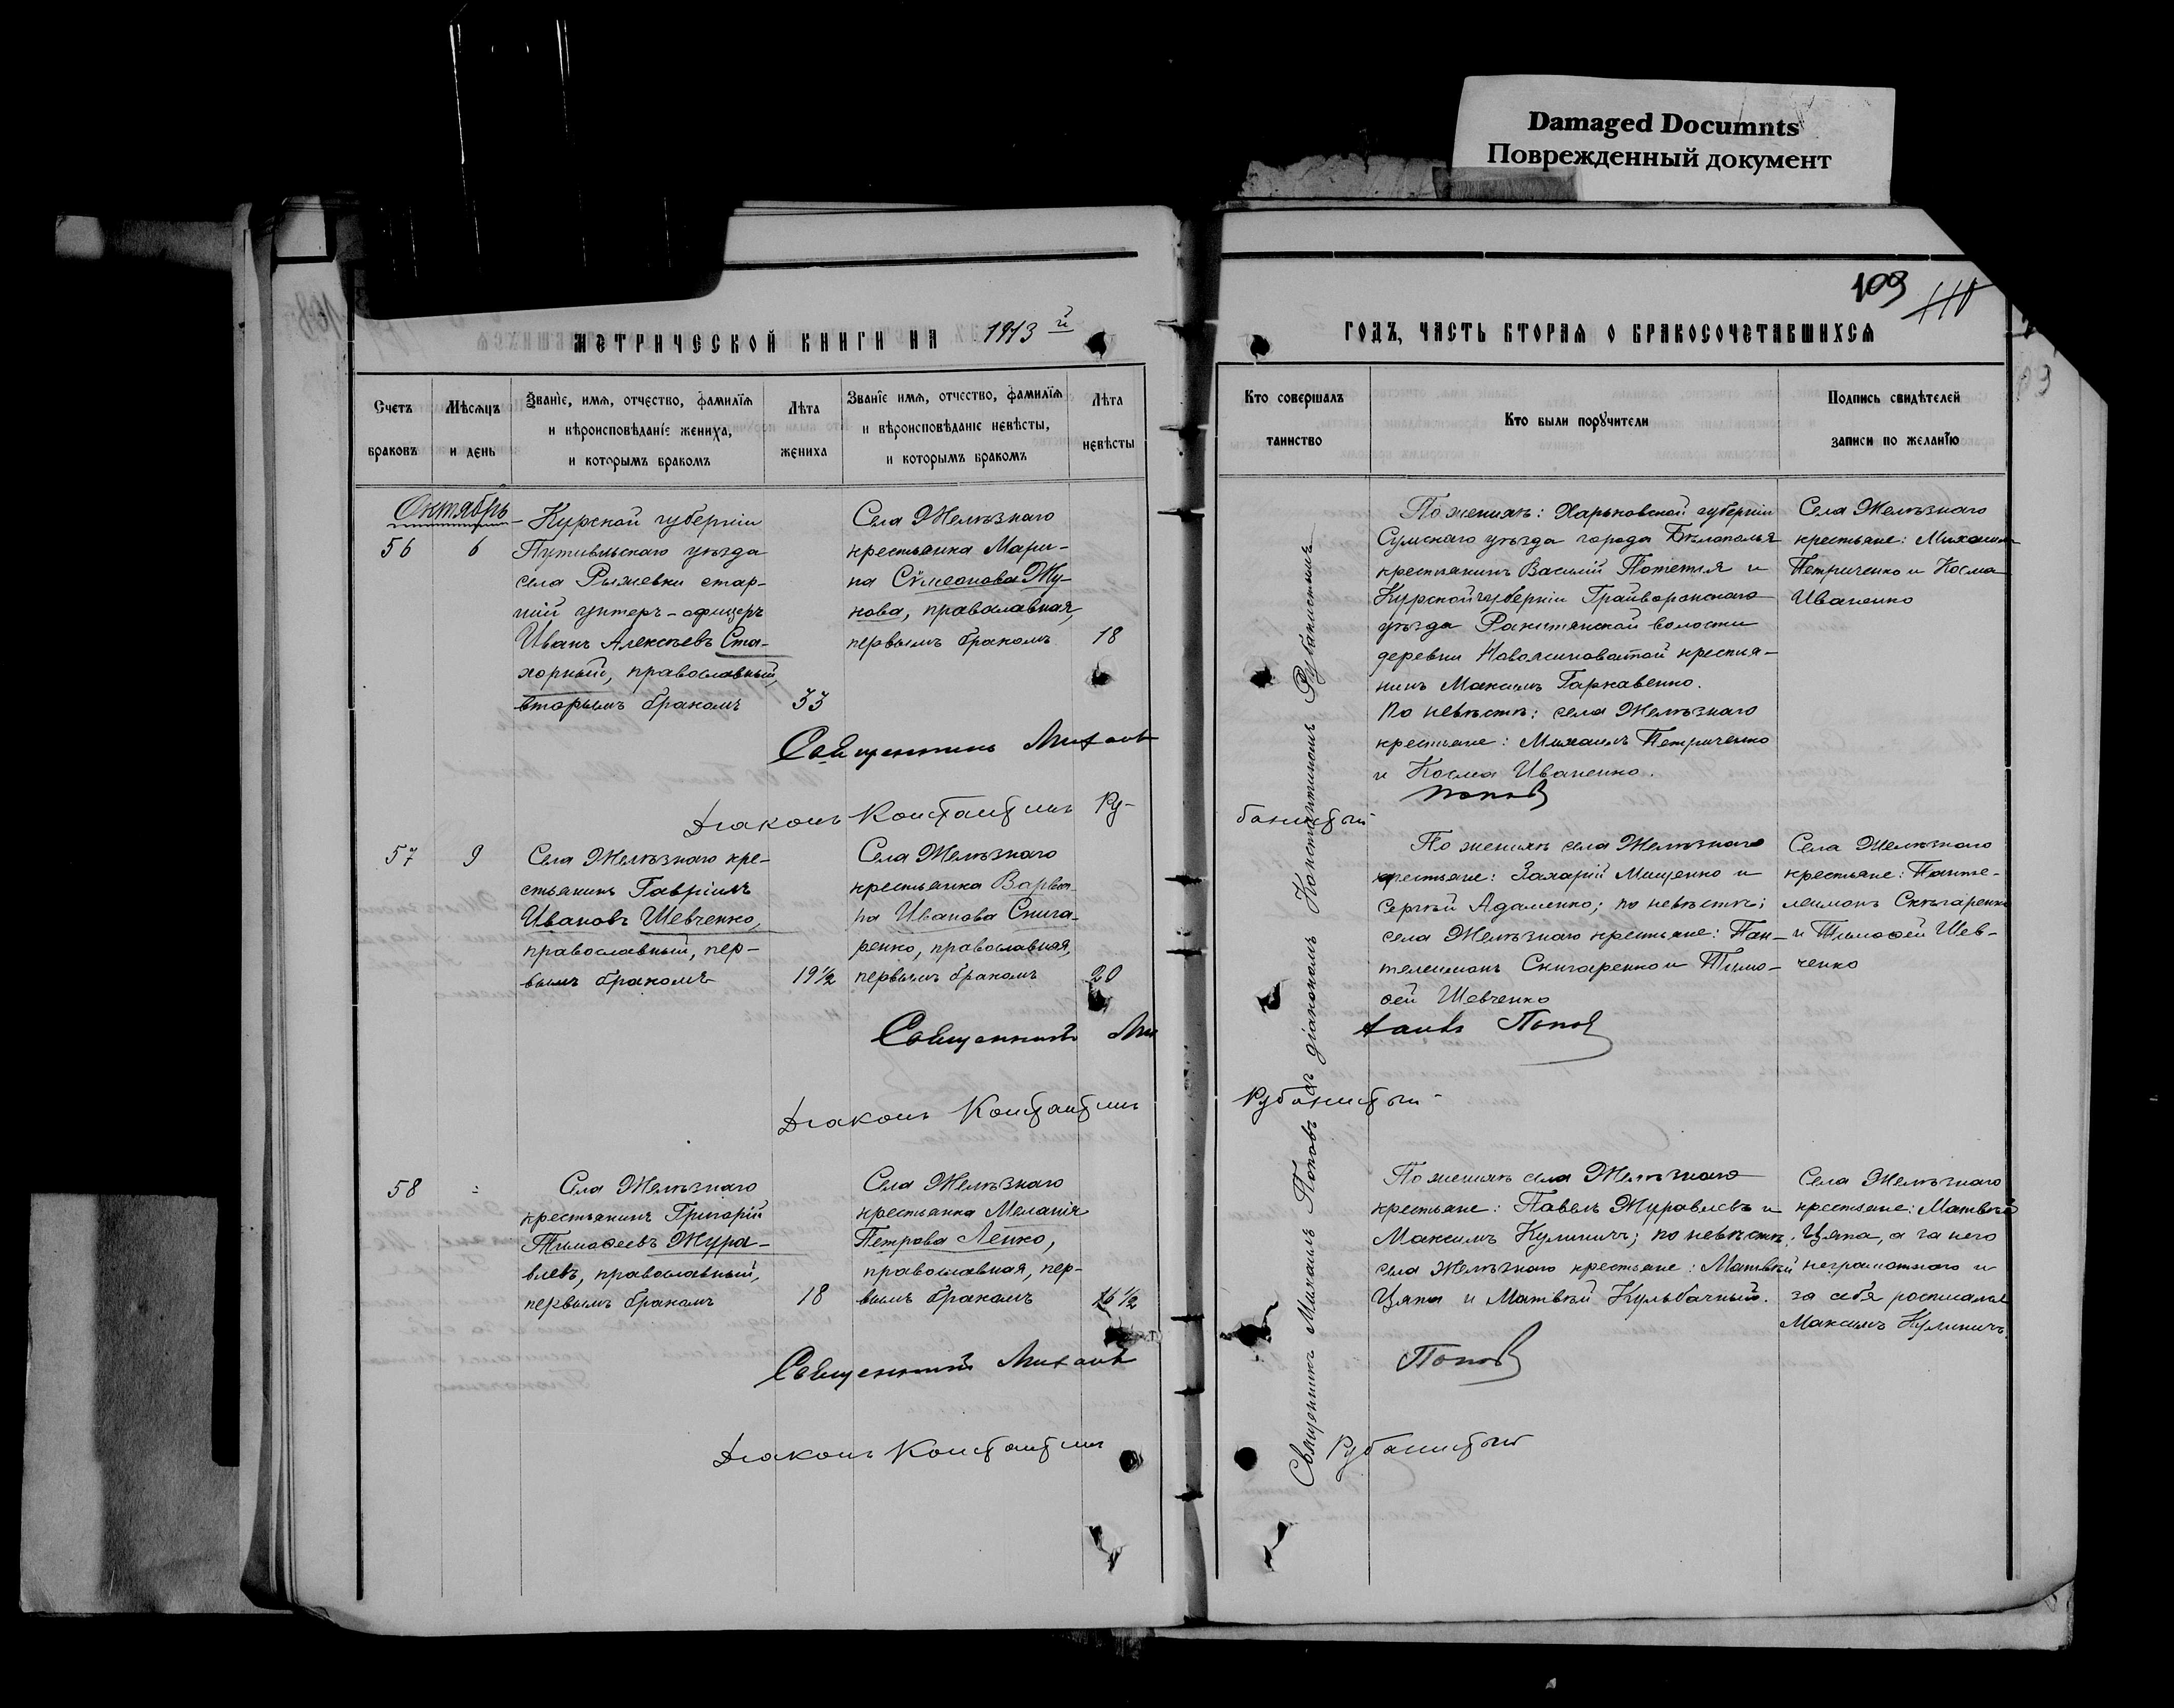 Damaged Documnts
Поврежденный документ
109
110
МЕТРИЧЕСКОЙ КНИГИ НА 1913 й
ГОДЪ, ЧАСТЬ ВТОРАЯ О БРАКОСОЧЕТАВШИХСЯ
Счетъ
браковъ
Мѣсяцъ
и день
Званіе, имя, отчество, фамилія
и вѣроисповѣданіе жениха,
и которымъ бракомъ
Лѣта
жениха
Званіе имя, отчество, фамилія
и вѣроисповѣданіе невѣсты,
и которымъ бракомъ
Лѣта
невѣсты
Кто совершалъ
таинство
Кто были поручители
Подпись свидѣтелей
записи по желанію
Октябрь
56
6
Курской губерніи
Путивльскаго уѣзда
села Рыжевки стар-
шій унтеръ-офицеръ
Иванъ Алексѣевъ Ста-
хорный, православный,
вторымъ бракомъ
33
Села Желѣзнаго
крестьянка Мари-
на Сѵмеонова Жу-
кова, православная,
первымъ бракомъ
18
По женихѣ: Харьковской губерніи
Сумскаго уѣзда города Бѣлополья
крестьянинъ Василій Потетя и
Курской губерніи Грайворонскаго
уѣзда Ракитянской волости
деревни крестья-
нинъ Максимъ Гаркавенко.
По невѣстѣ: села Желѣзнаго
крестьяне: Михаилъ Петриченко
и Косма Иваненко.
Села Желѣзнаго
крестьяне: Михаилъ
Петриченко и Косма
Иваненко
Священникъ Михаилъ Поповъ
Діаконъ Константинъ Ру-
банистый
57
9
Села Желѣзнаго кре-
стьянинъ Гавріилъ
Ивановъ Шевченко,
православный, пер-
вымъ бракомъ
19½
Села Желѣзнаго
крестьянка Варва-
ра Иванова Снига-
ренко, православная,
первымъ бракомъ
20
По женихѣ села Желѣзнаго
крестьяне: Захарій Мищенко и
Сергѣй Адаменко; по невѣстѣ:
села Желѣзнаго крестьяне: Пан-
телеимонъ Снигаренко и Тимо-
ѳей Шевченко
Села Желѣзнаго
крестьяне: Панте-
леимонъ Снѣгаренко
и Тимоѳей Шев-
ченко
Священникъ Михаилъ Поповъ
Діаконъ Константинъ Рубанистый
58
Села Желѣзнаго
крестьянинъ Григорій
Тимоѳеевъ Жура-
влевъ, православный,
первымъ бракомъ
18
Села Желѣзнаго
крестьянка Меланія
Петрова Лепко,
православная, пер-
вымъ бракомъ
16½
По женихѣ села Желѣзнаго
крестьяне: Павелъ Журавлевъ и
Максимъ Кулиничъ; по невѣстѣ:
села Желѣзнаго крестьяне: Матвѣй
Цяпа и Матвѣй Кульбачный.
Села Желѣзнаго
крестьяне: Матвѣй
Цяпа, а за него
неграмотнаго и
за себя росписался
Максимъ Кулиничъ.
Священникъ Михаилъ Поповъ
Діаконъ Константинъ Рубанистый
Священникъ Михаилъ Поповъ съ діакономъ Константиномъ Рубанистымъ